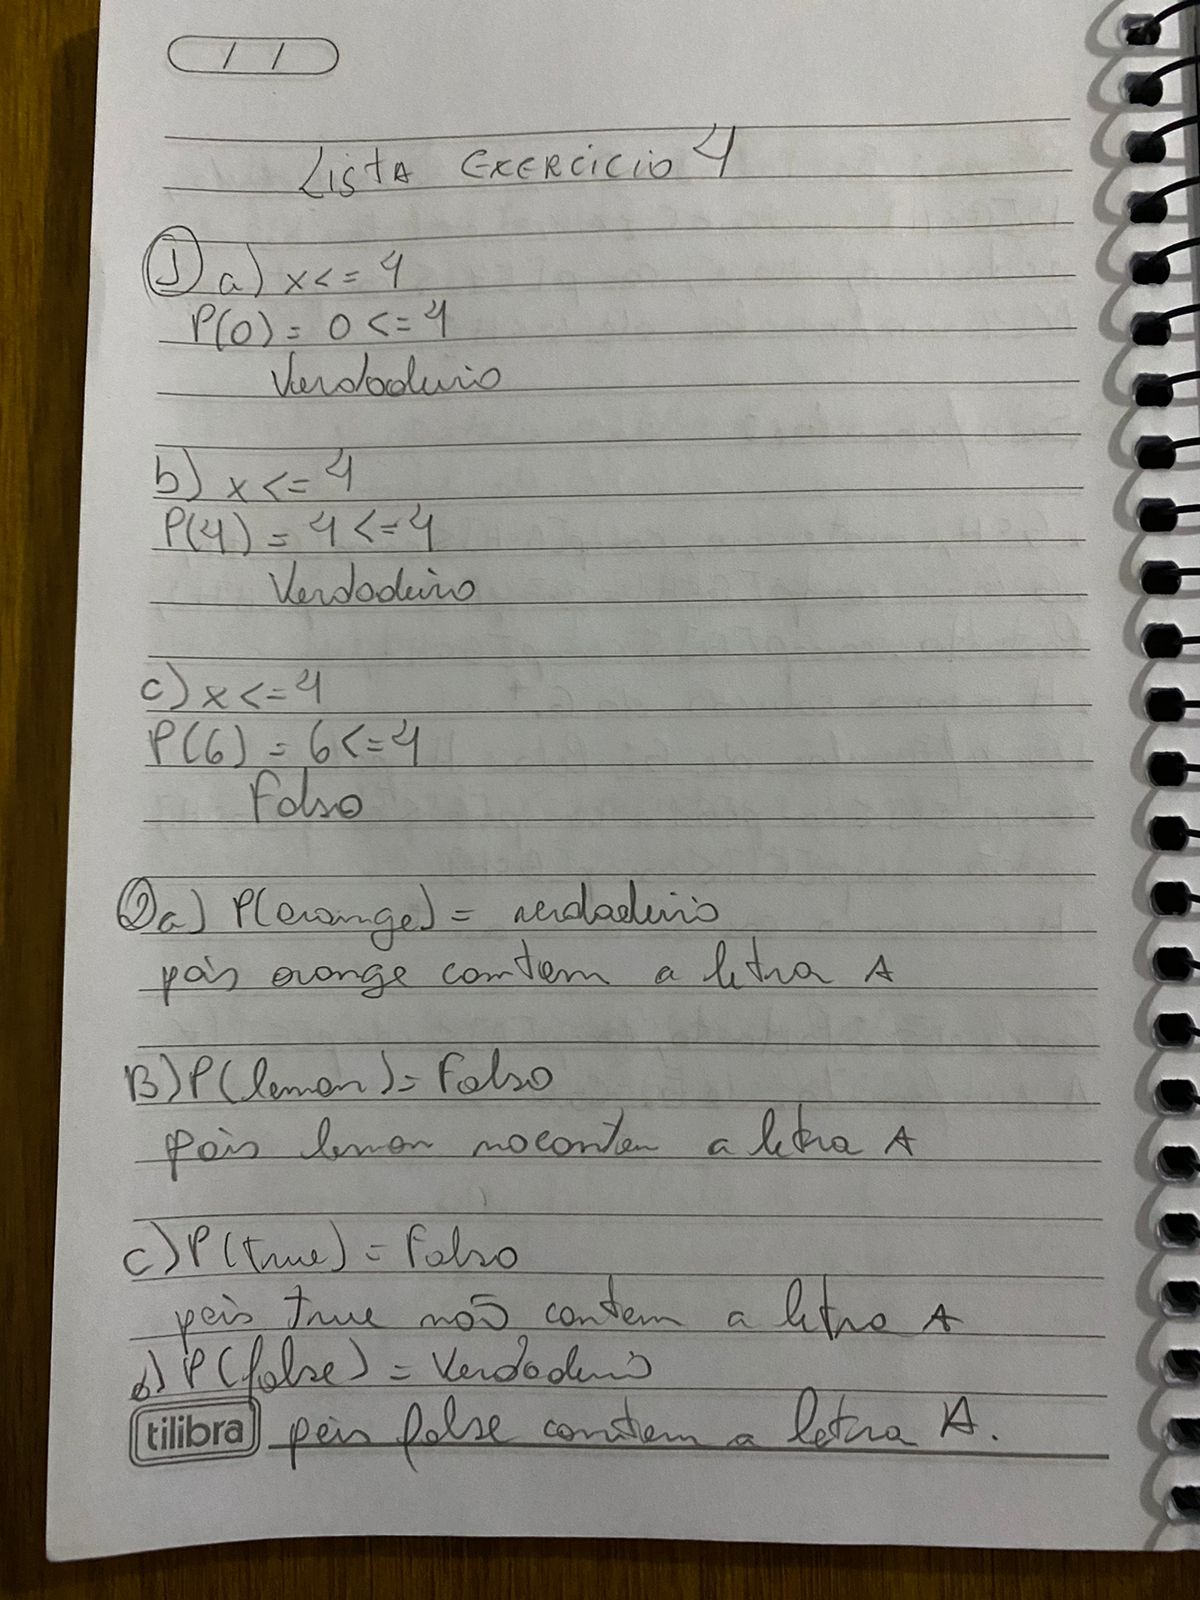 / /
Lista Exercicio 4
1) a) x <= 4
P(0) = 0 <= 4
Verdadeiro
b) x <= 4
P(4) = 4 <= 4
Verdadeiro
c) x <= 4
P(6) = 6 <= 4
Falso
2) a) P(orange) = verdadeiro
pois orange contem a letra A
B) P(lemon) = Falso
pois lemon no contem a letra A
c) P(true) = Falso
pois true não contem a letra A
d) P(false) = Verdadeiro
tilibra pois false contem a letra A.